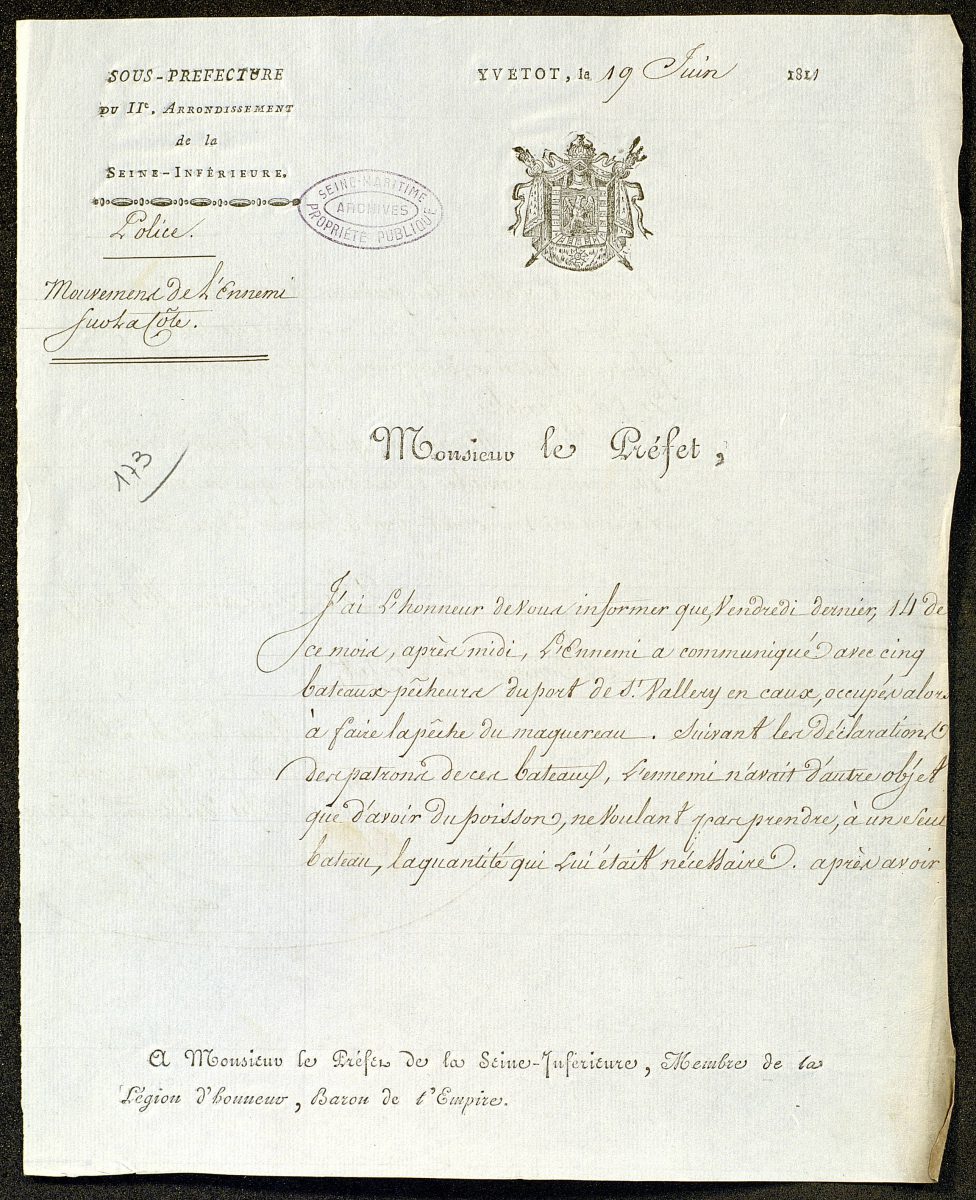 SOUS-PREFECTURE
DU IIe. ARRONDISSEMENT
de la
SEINE-INFÉRIEURE.
Police.
Mouvemens de L'Ennemi
sur La Côte.
YVETOT, le 19 Juin 1811
SEINE-MARITIME
ARCHIVES
PROPRIÉTÉ PUBLIQUE
173
Monsieur le Préfet,
J'ai L'honneur de vous informer que, Vendredi dernier, 14 de
ce mois, après midi, L'Ennemi a communiqué avec cinq
bateaux pêcheurs du port de St. Vallery en caux, occupés alors
à faire la pêche du maquereau. Suivant les déclarations
des patrons de ces bateaux, L'ennemi n'avait d'autre objet
que d'avoir du poisson, ne voulant pas prendre, à un seul
bateau, la quantité qui Lui était nécessaire. après avoir
A Monsieur le Préfet de la Seine-Inférieure, Membre de la
Légion d'honneur, Baron de l'Empire.